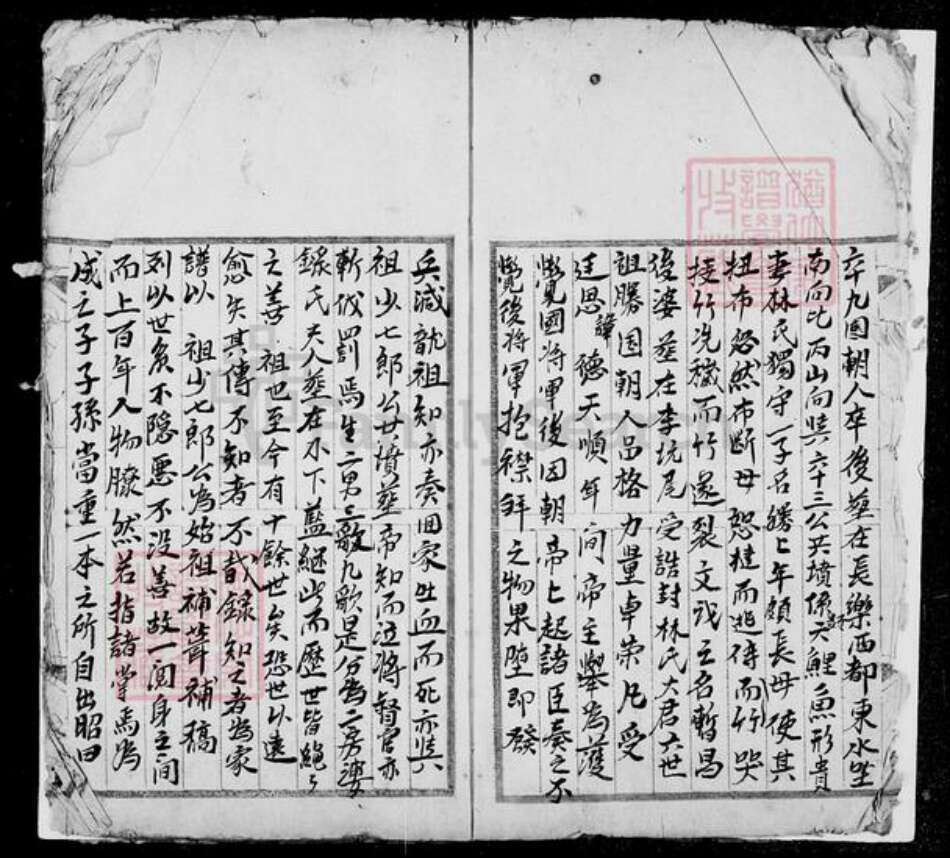 卒九国朝人卒後塋在長樂西都東水坐
南向北丙山向共六十三公共墳係天鯉魚形貴
妻林氏獨守一子名勝上年頗長母使其
扭布忽然布斷母怒撻而逃待而竹哭
接竹洗穢而竹遂裂文武之名暫昌
後婆塋在李坑尾受誥封林氏大君六世
祖勝国朝人品格力量卓荣凡受
廷恩諱德天順年间帝主舉為護
覺國将軍後因朝帝上起諸臣奏之不
覺後将軍抱襟拜之物果墮即發
兵滅就祖知亦奏回家吐血而死亦共
祖少七郎公母墳塋帝知而泣将督官亦
斬伐罰焉生二男三歌九歌是分為二房婆
錄氏夫人塋在不下藍継此而歷世皆絶々
之善祖也至今有十餘世矣恐世以遠
愈失其傳不知者不敢錄知之者為家
譜以祖少七郎公為始祖補葺補稿
列以世矣不隐惡不没善故一閲身之间
而上百年人物朦然若指諸掌焉為
成之子子孫當重一本之所自出昭田